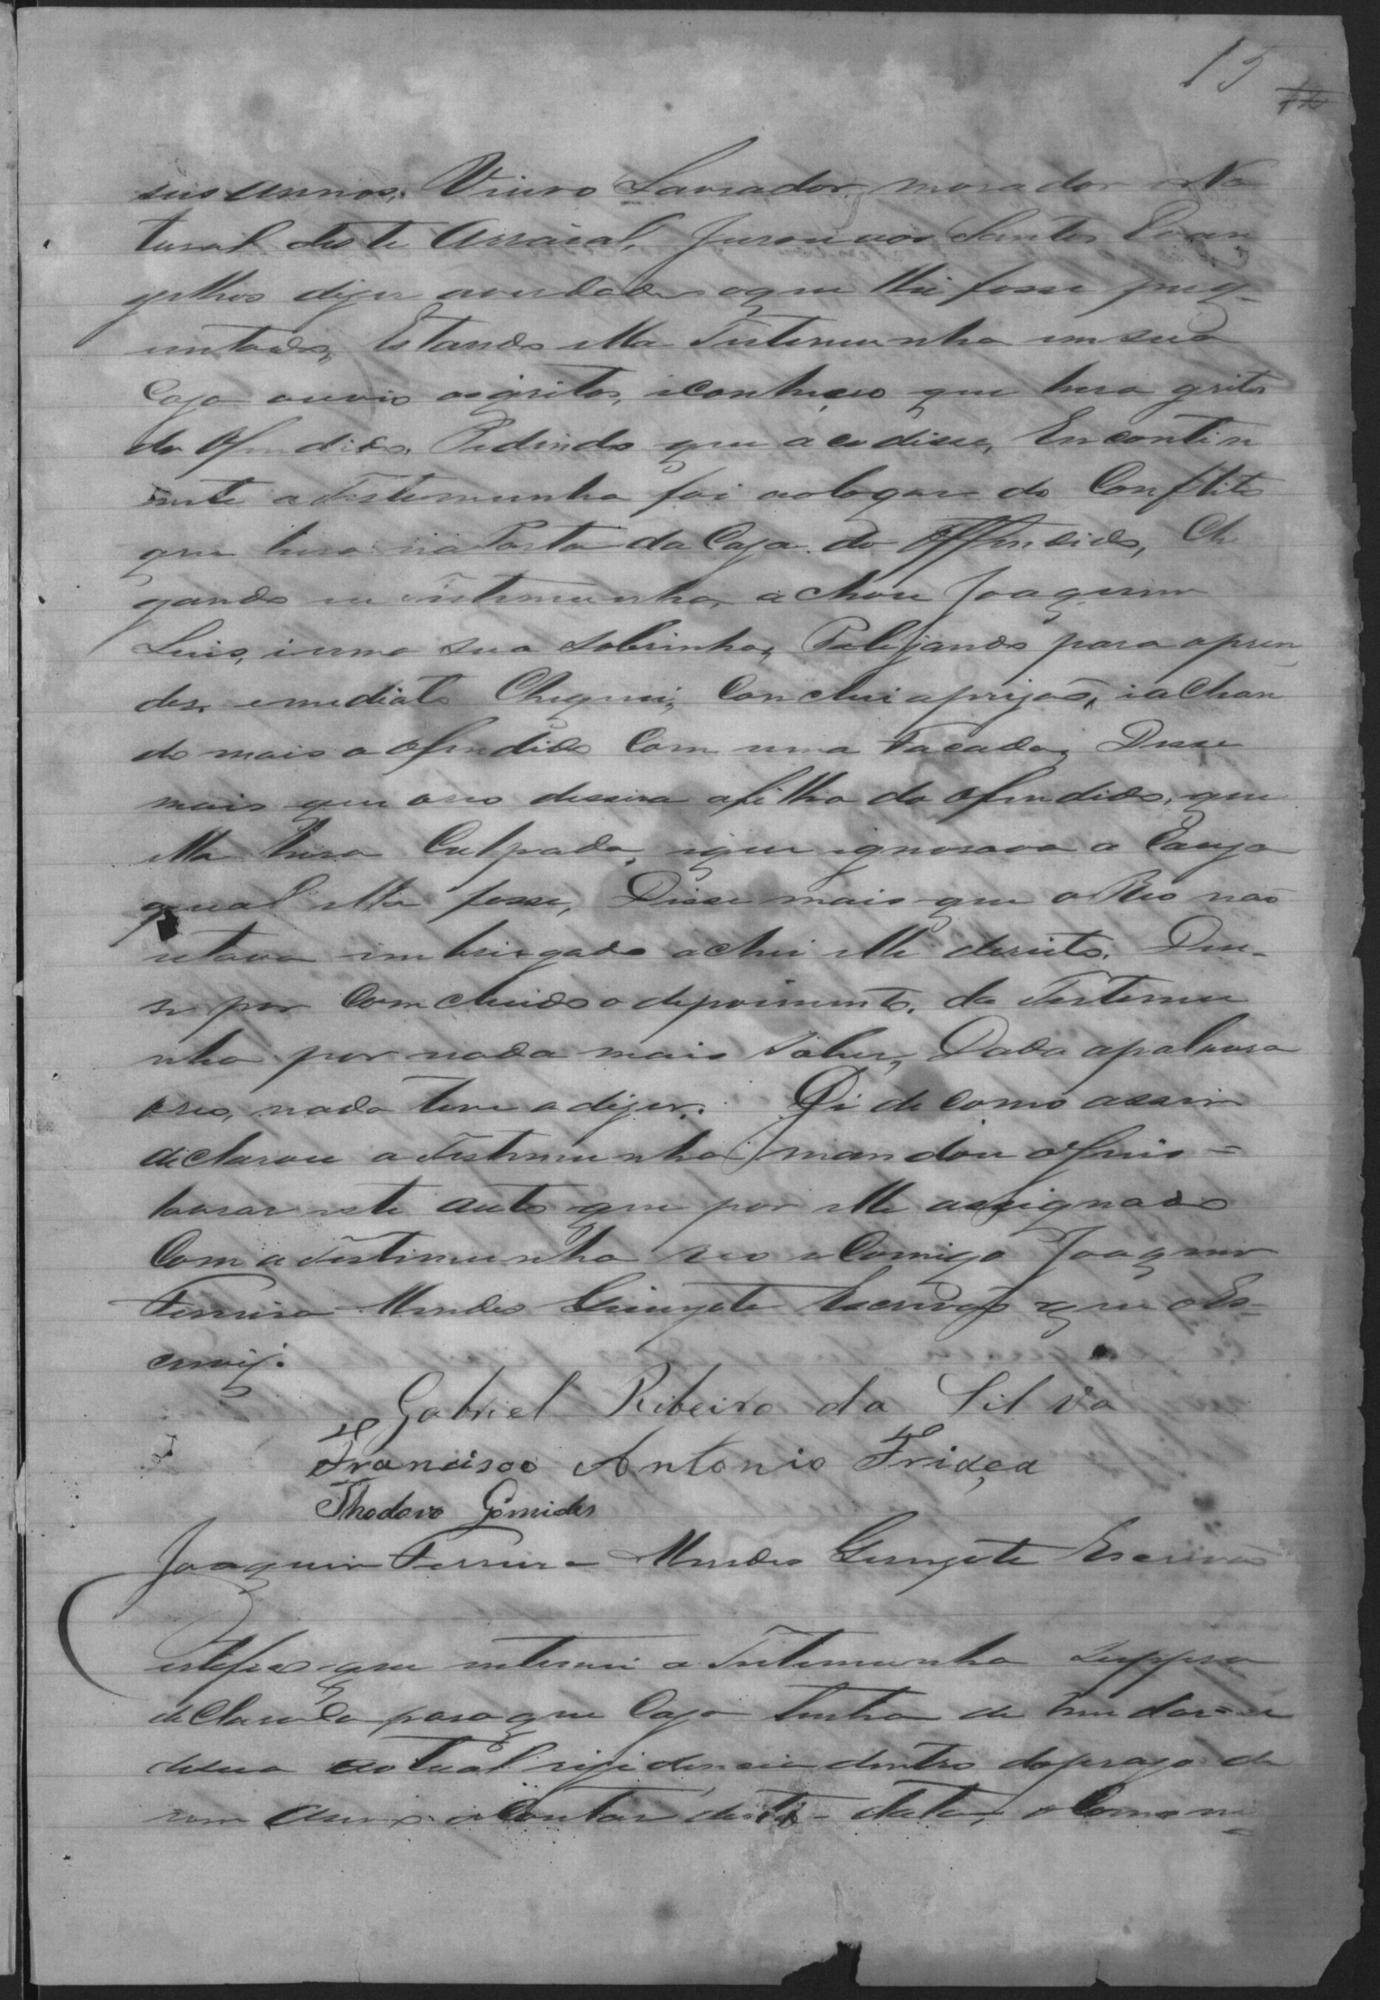 15
seis annos, Viuvo Lavrador, morador e Na
tural deste Arraial, Jurou aos Santos Evan
gelhos dizer averdade oque lhe fosse preg-
untado, Estando ella Testemunha em sua
Caza ouvio os gritos, iconheceo que hera gritos
do Ofendido, Pedindo que acodisse, Encontin
ente a Testemunha foi aologar do Conflito
que hera na Porta da Caza do Offendido, Che
gando eu testemunha, achou Joaquim
Luis, i uma sua sobrinha, Pelejando para apren
der, emediato Cheguei, Conclui aprizão, iachan
do mais o ofendido Com uma Facada, Disse
mais que oreo dissera afilha do ofendido, que
ella hera Culpada, ique ignorava a Cauza
qual ella fosse, Disse mais que o Reo não
estava imbriagado achei elle direito. Deu-
se por Comcluido o depoimento, da Testemu
nha por nada mais Saber, Dada apalavra
oreo, nada teve adizer. Di de como assim
declarou a Testemunha mandou o Juis =
lavrar este auto que por elle assignado
Com a Testimunha reo e Comigo Joaquim
Ferreira Mendes Escrivão que o Es-
crevy.
Gabriel Ribeiro da Silva
Francisco Antonio Friaça
Thodoro Gomides
Joaquim Ferreira Mendes Escrivão
que a Testemunha suppra
declarada para que Cazo tenha de mudar=se
desua actual rezidencia dentro doprazo de
um anno aContar desta data, o Comuni=